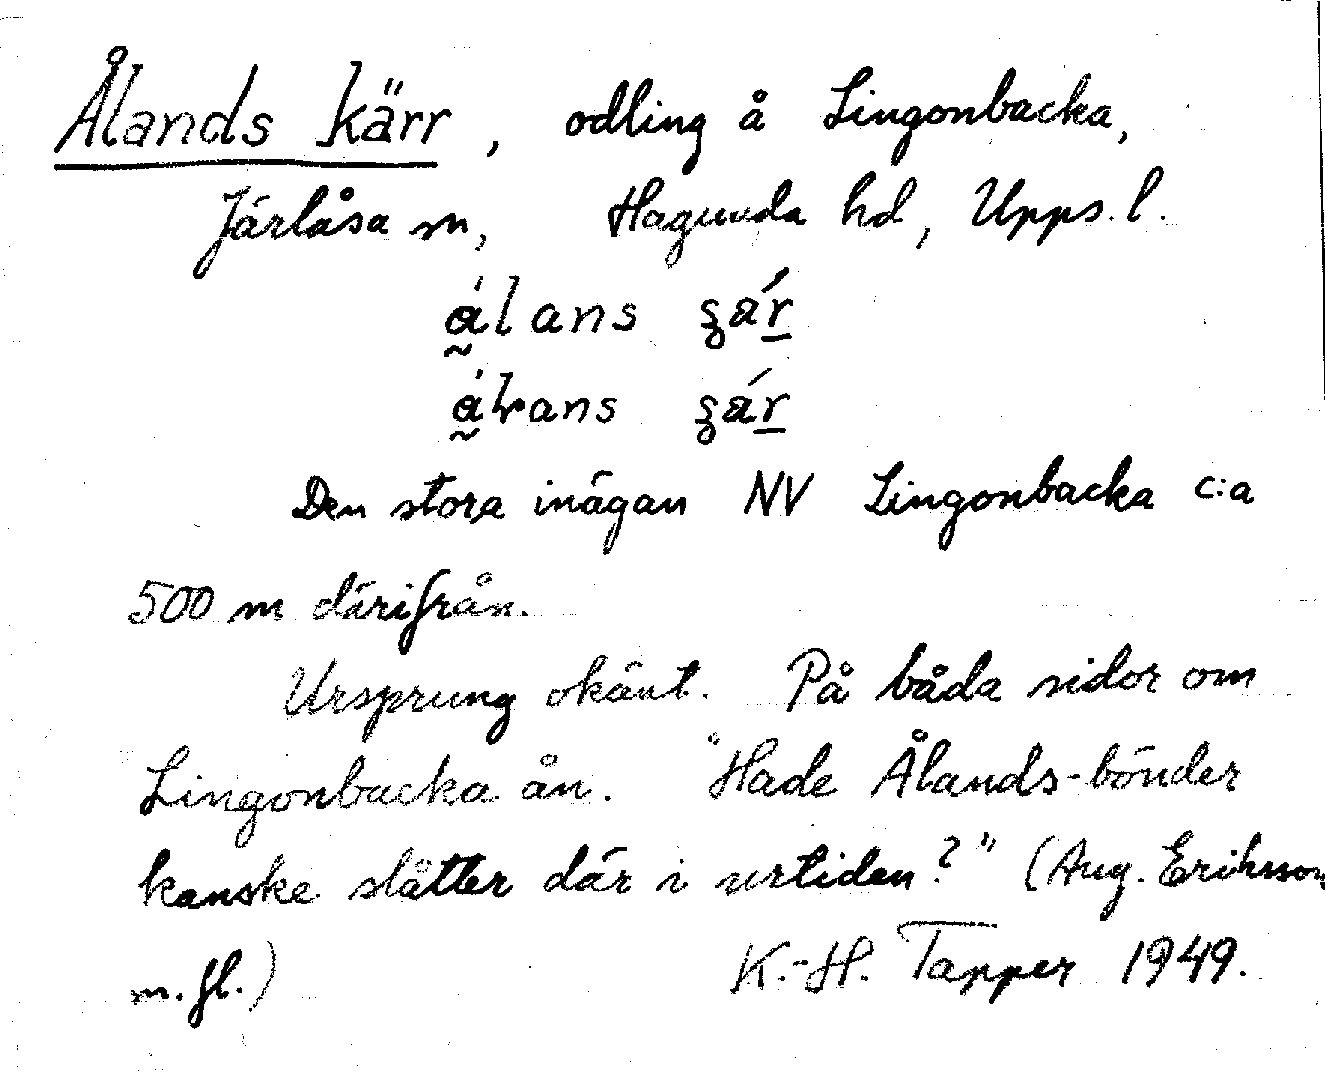 Ålands kärr, odling å Lingonbacka,
Järlåsa sn, Hagunda hd, Upps. l.
álans
ans
Den stora inägan NV Lingonbacka c:a
500 m därifrån.
Ursprung okänt. På båda sidor om
Lingonbacka ån. "Hade Ålands-bönder
kanske slåtter där i urtiden?" (Aug. Eriksson
m.fl.) K.-H. Tapper 1949.